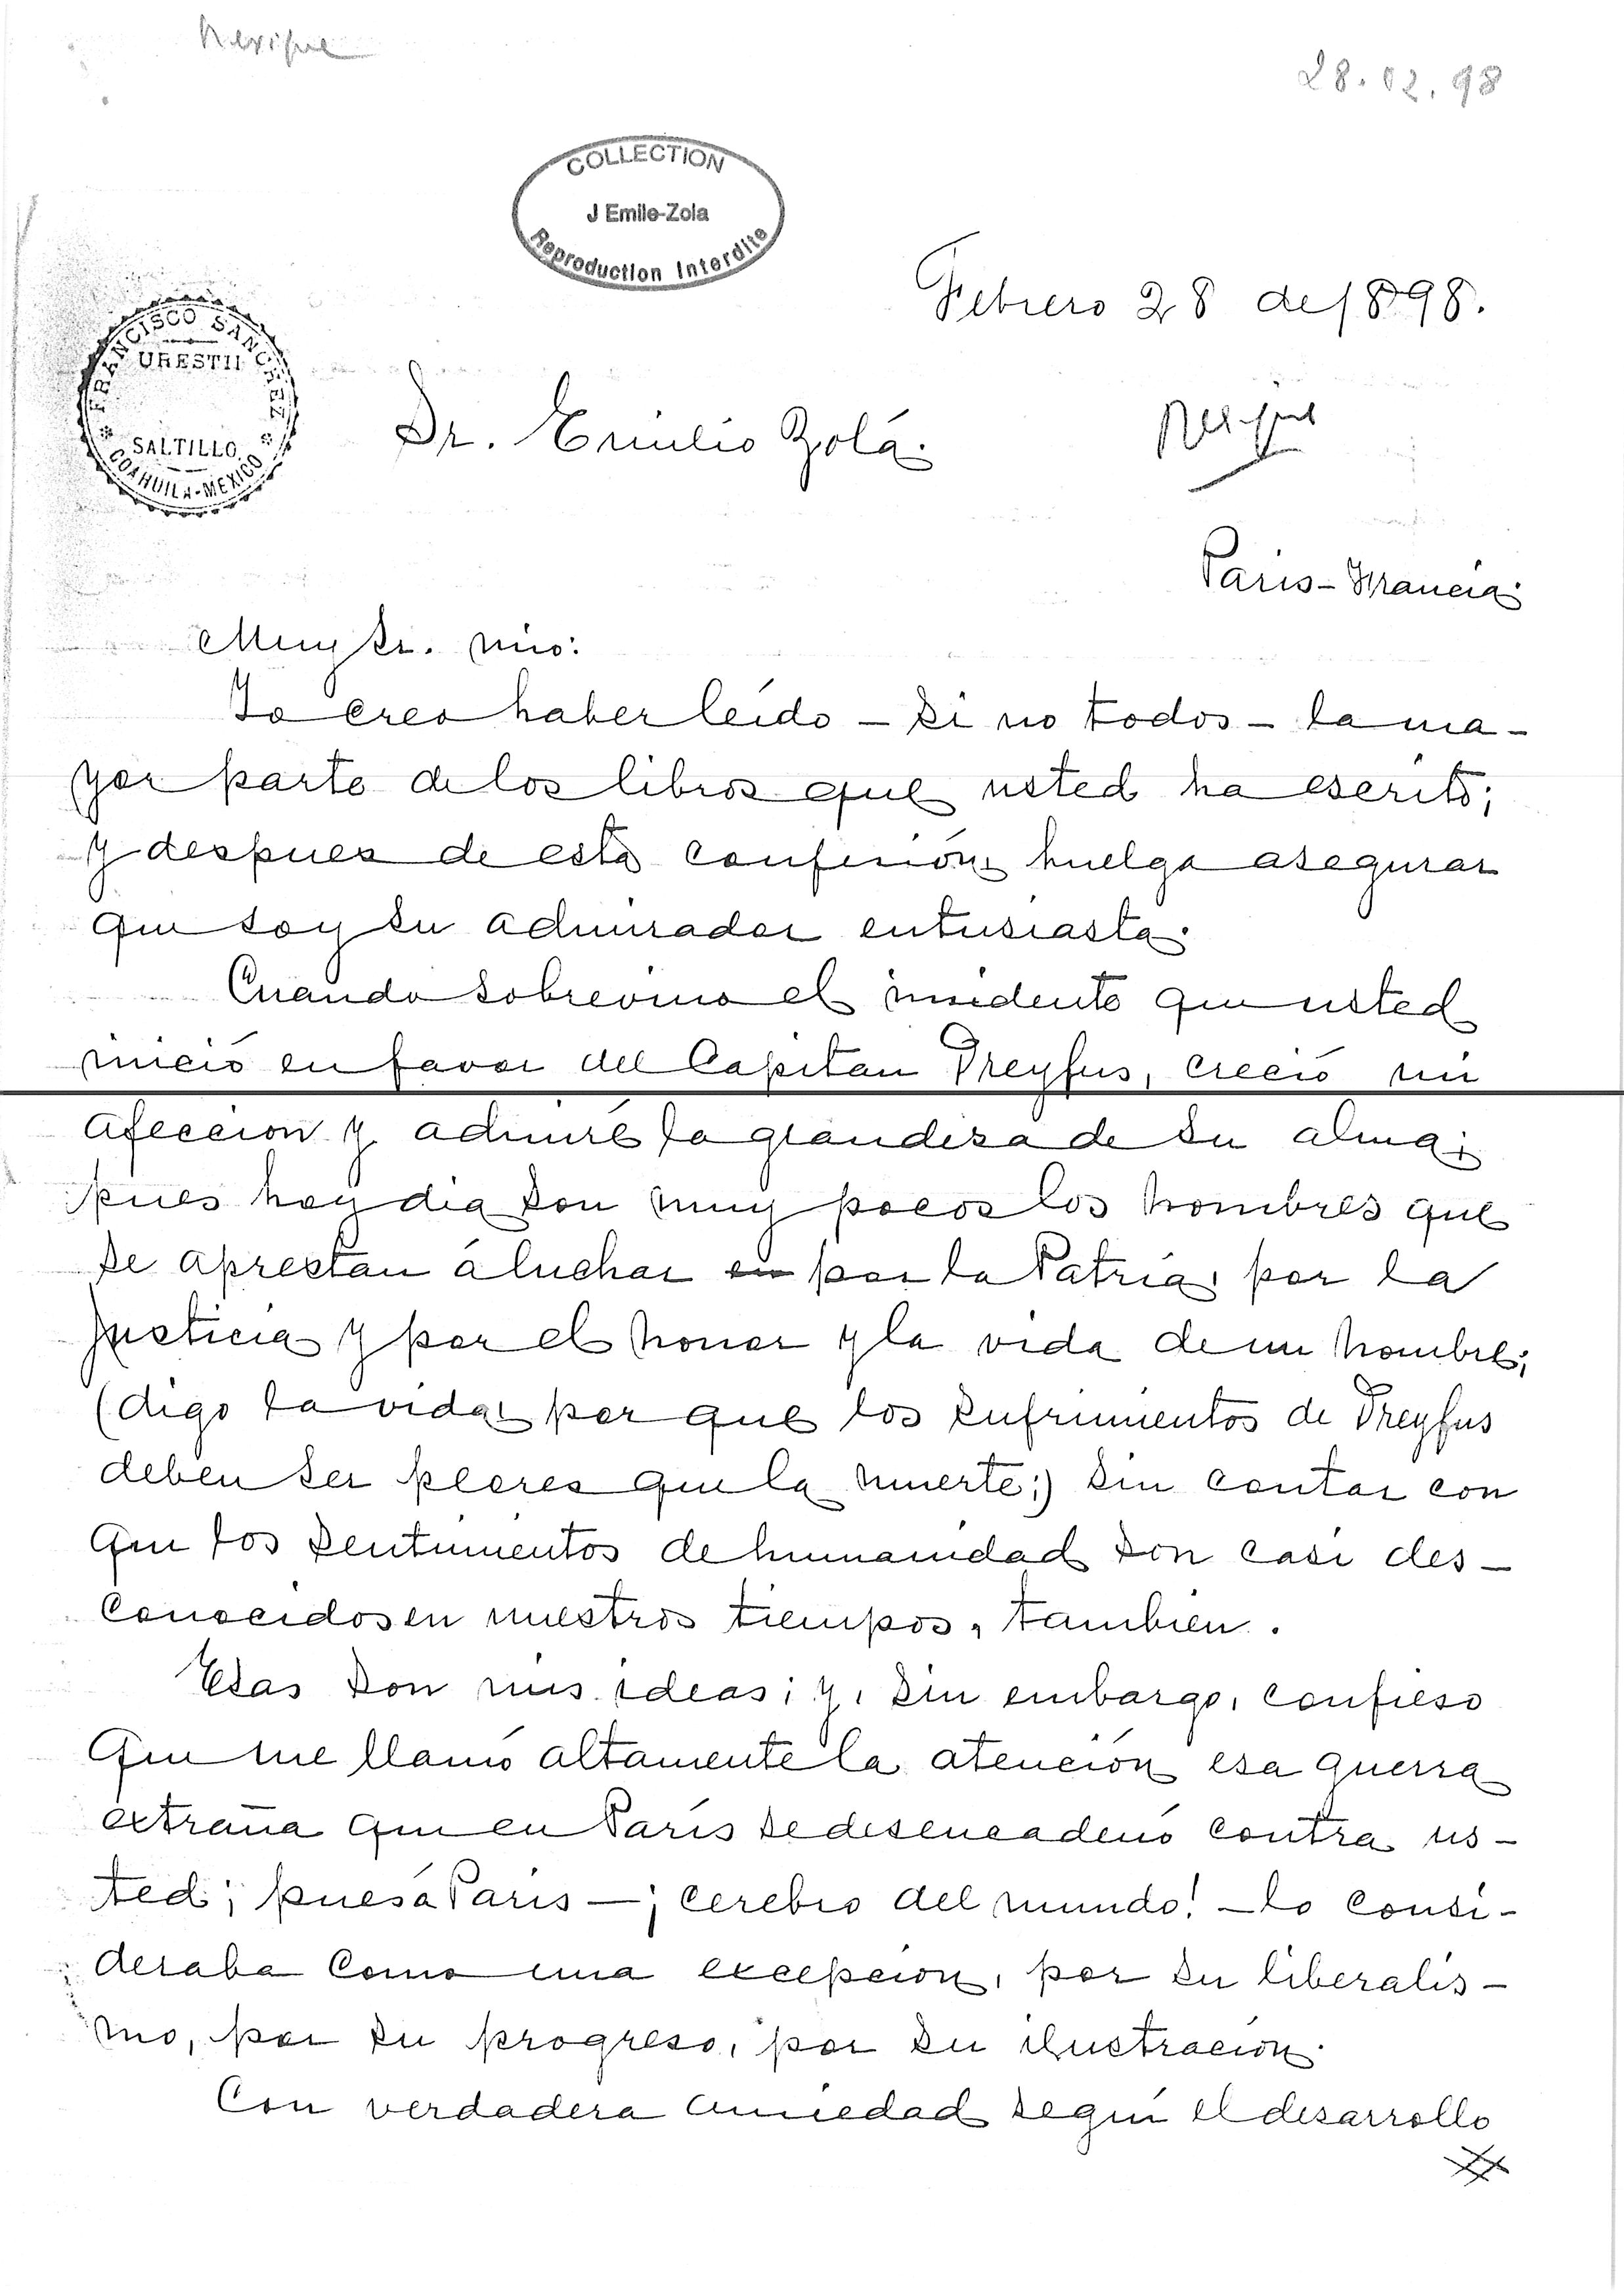 Mexique
28.02.98
COLLECTION
J Emile-Zola
Reproduction Interdite
Febrero 28 de 1898.
FRANCISCO SANCHEZ
URESTII
SALTILLO
COAHUILA-MEXICO
Dr. Emilio Zolá.
Mexique
Paris-Francia.
Muy Sr. mio:
Yo creo haber leído - si no todos - la ma-
yor parte de los libros que usted ha escrito;
y despues de esta confesión, huelga asegurar
que soy su admirador entusiasta.
Cuando sobrevino el insidente que usted
inició en favor del Capitan Dreyfus, creció mi
afeccion y admiré la grandesa de su alma;
pues hoy dia son muy pocos los hombres que
se aprestan á luchar en por la Patria, por la
justicia y por el honor y la vida de un hombre;
(digo la vida, por que los sufrimientos de Dreyfus
deben ser peores que la muerte;) sin contar con
que los sentimientos de humanidad son casi des-
conocidos en nuestros tiempos, tambien.
Esas son mis ideas; y, sin embargo, confieso
que me llamó altamente la atención esa guerra
extraña que en París se desencadenó contra us-
ted; pues á Paris - ¡cerebro del mundo! - lo consi-
deraba como una excepcion, por su liberalis-
mo, por su progreso, por su ilustracion.
Con verdadera ansiedad seguí el desarrollo